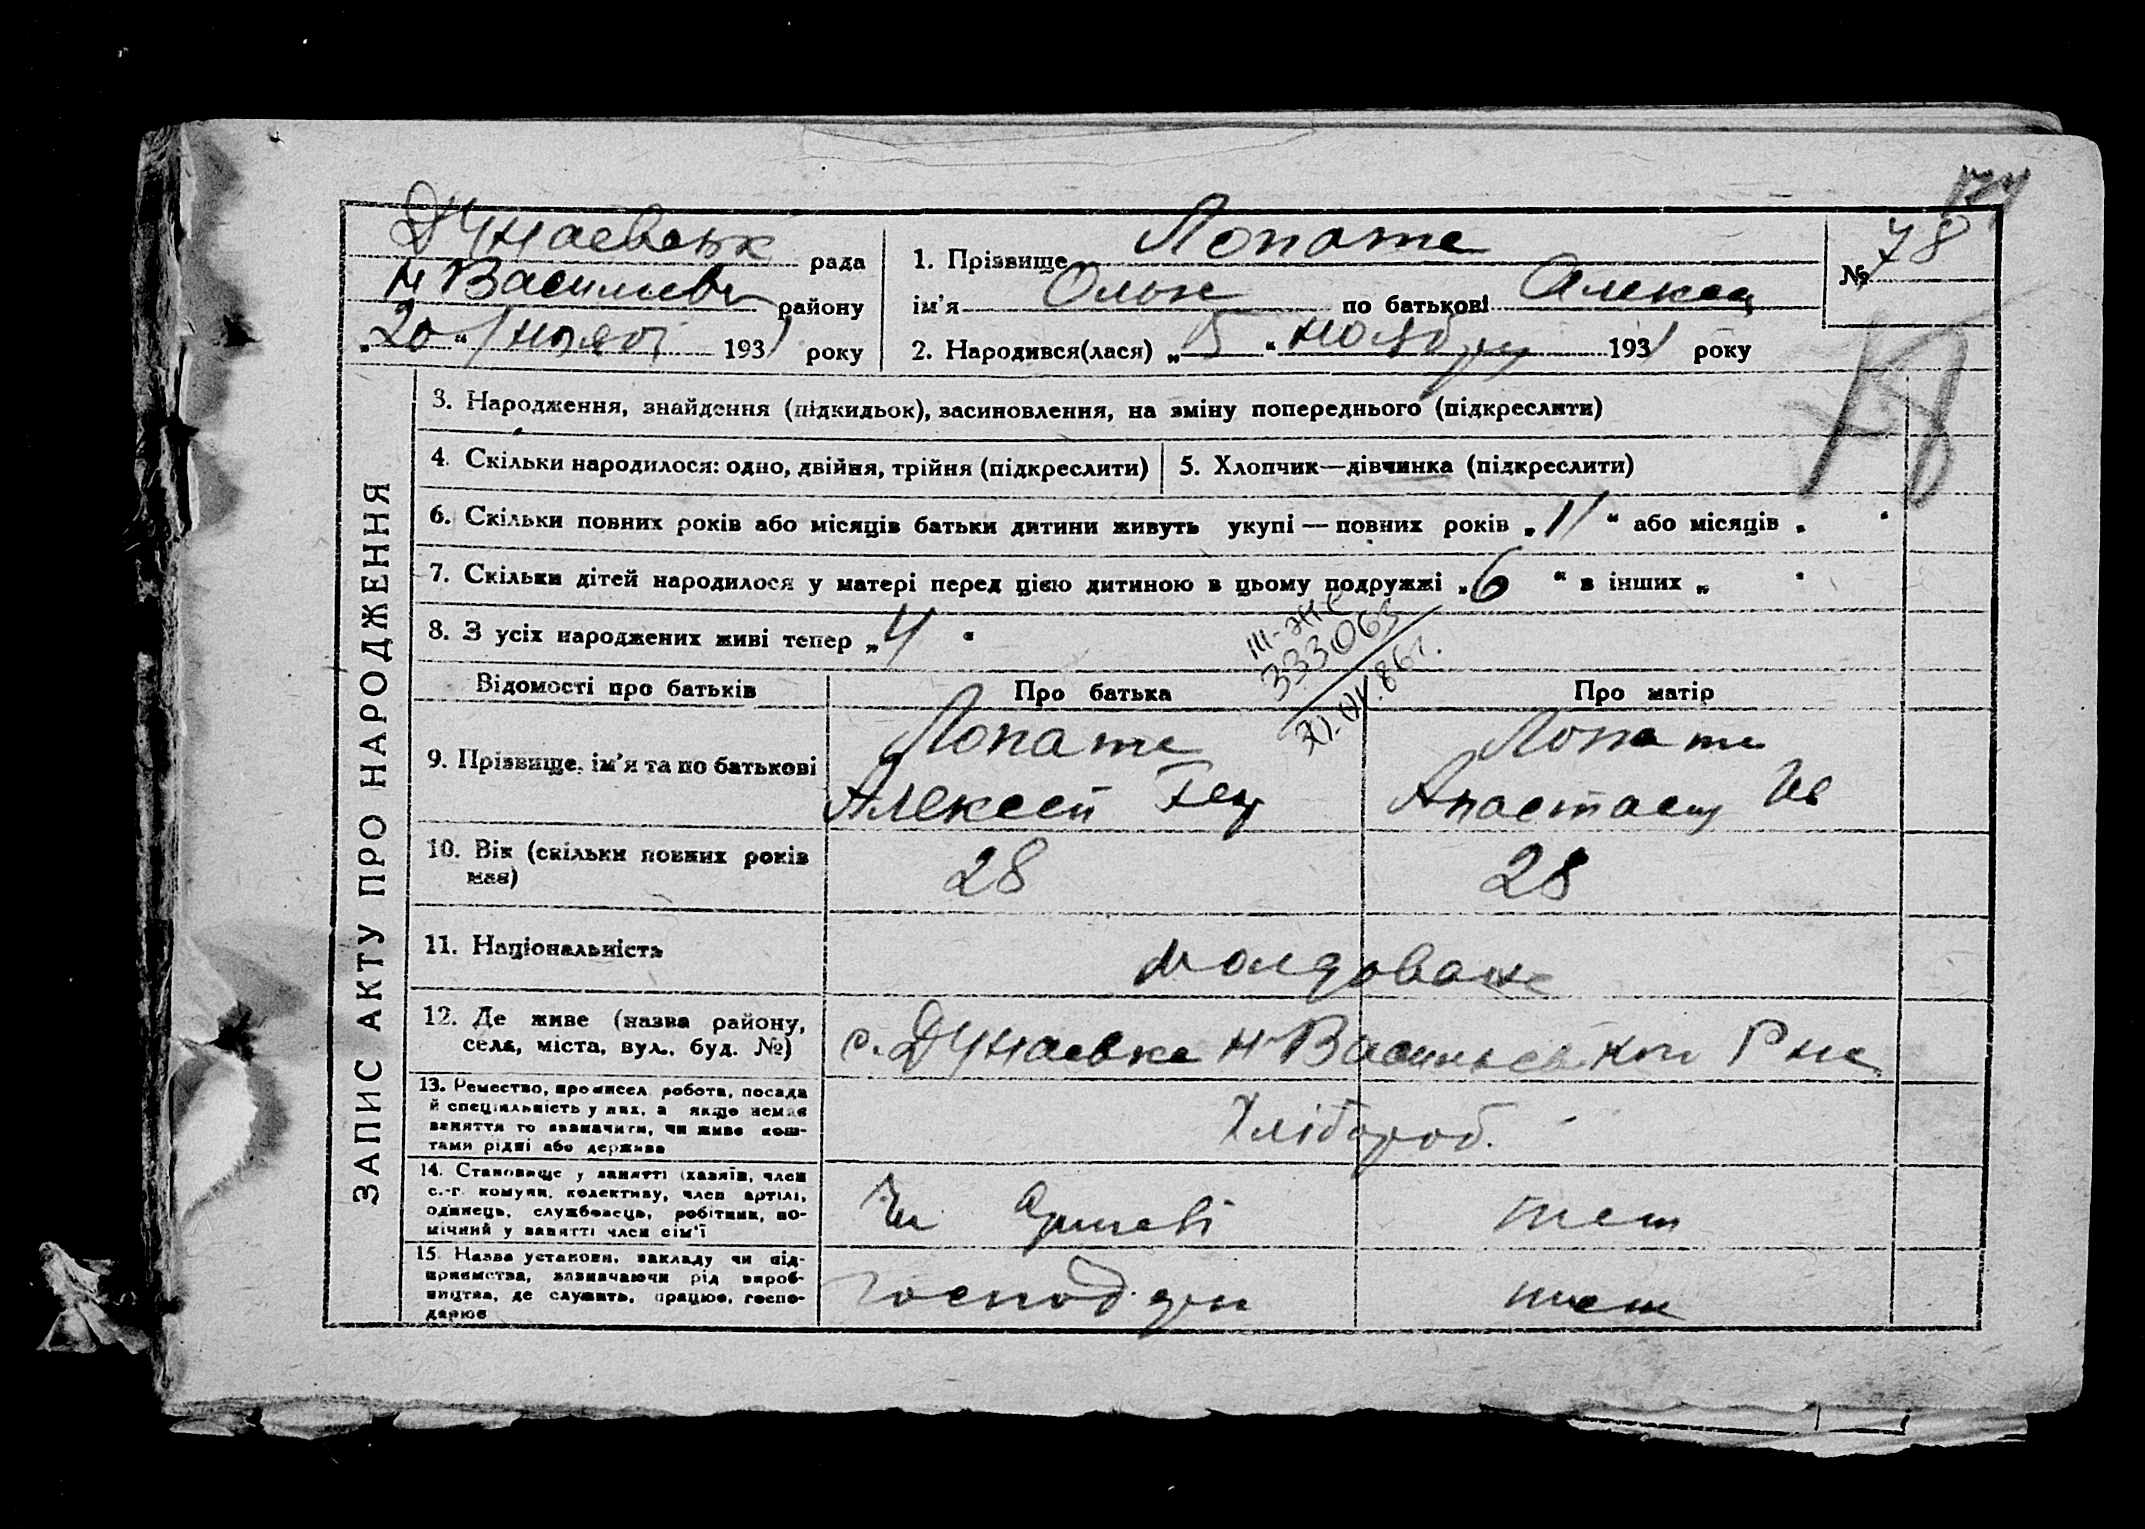 ЗАПИС АКТУ ПРО НАРОДЖЕННЯ
Дунаевськ рада
Н Васильевс району
„20“ 1931 року
1. Прізвище Лопате
ім'я по батькові Алексеи
2. Народився(лася) „5“ ноября 1931 року
№ 78
78
3. Народження, знайдення (підкидьок), засиновлення, на зміну попереднього (підкреслити)
4. Скільки народилося: одно, двійня, трійня (підкреслити)
5. Хлопчик—дівчинка (підкреслити)
6. Скільки повних років або місяців батьки дитини живуть укупі — повних років „11“ або місяців „ “
7. Скільки дітей народилося у матері перед цією дитиною в цьому подружжі „6 “ в інших „ “
8. З усіх народжених живі тепер „4 “
333063
Відомості про батьків
Про батька
Про матір
9. Прізвище, ім'я та по батькові
Лопате
Алексей
Лопате
Анастасия Ив
10. Вік (скільки повних років має)
28
28
11. Національність
молдоване
12. Де живе (назва району, села, міста, вул., буд. №)
с. Дунаевке Н-Васильевской
13. Ремество, промисел, робота, посада
й спеціяльність у них, а якщо немає
заняття то зазначити, чи живе кош-
тами рідні або держави
Хлібороб.
14. Становище у занятті (хазяїн, член
с.-г. комуни, колективу, член артілі,
одинець, службовець, робітник, по-
мічний у занятті член сім'ї
15. Назва установи, закладу чи під-
приємства, зазначаючи рід вироб-
ництва, де служить, працює, госпо-
дарює